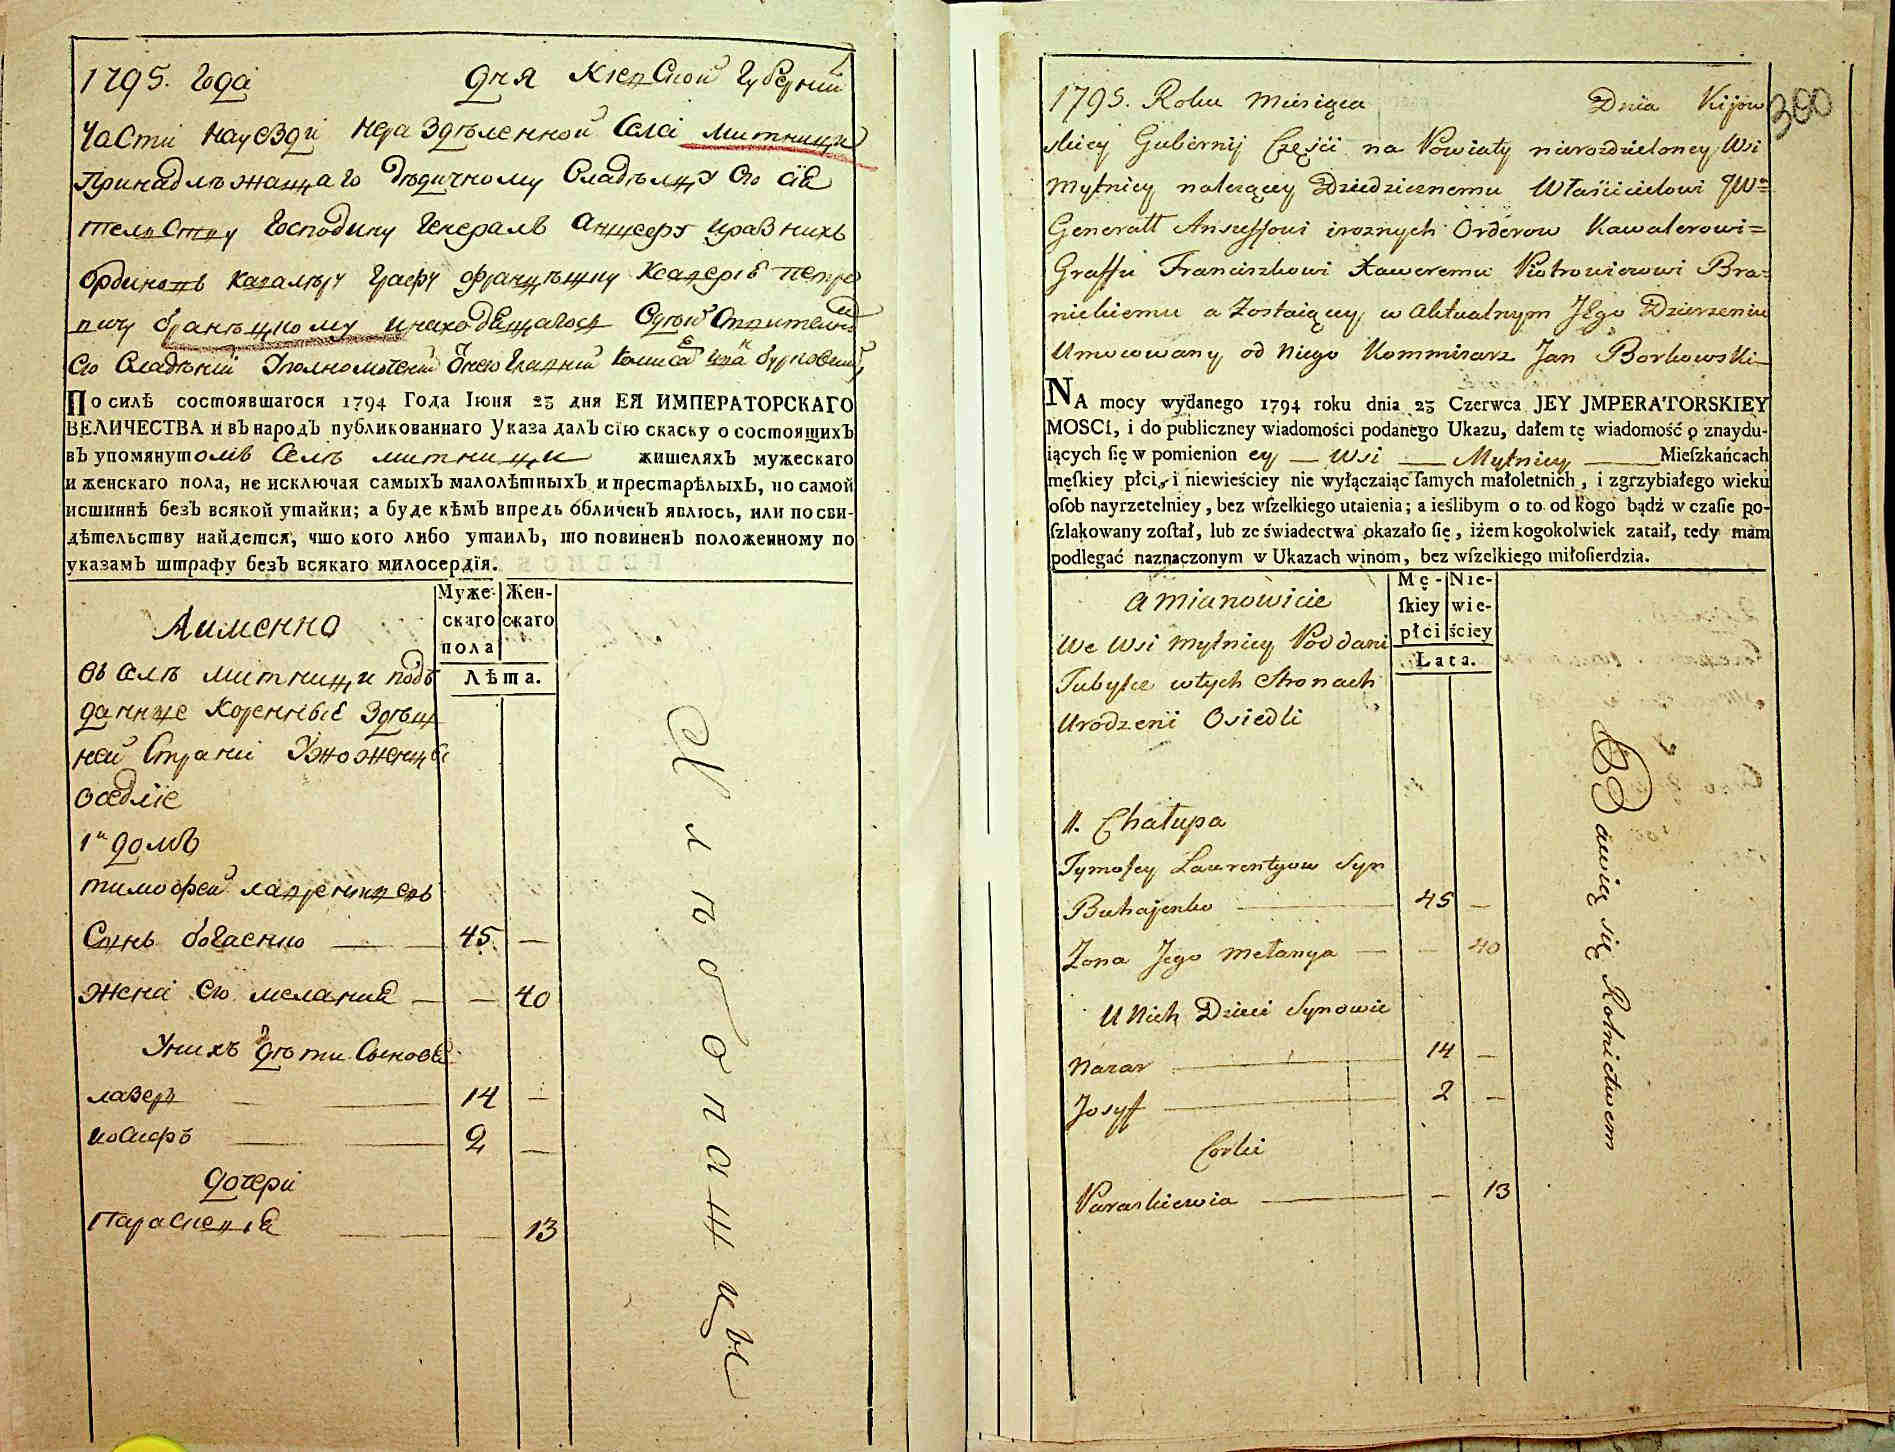 1795. Года дня Киевской Губернии
Части науезди неразделенной Села митници
Принадлежащаго дедичному Владелцу Его Сия
телству Господину Генералъ Аншефу иразнихъ
Ординовъ кавалеру Графу Францишку Ксаверию Петро
вичу браницкому инаходящагося
Его Владений Уполномочений
По силѣ состоявшагося 1794 Года Iюня 23 дня ЕЯ ИМПЕРАТОРСКАГО
ВЕЛИЧЕСТВА и въ народъ публикованнаго Указа далъ сїю скаску о состоящихъ
въ упомянутомъ Селѣ митници жителяхъ мужескаго
и женскаго пола, не исключая самыхъ малолѣтныхъ и престарѣлыхъ, по самой
истиннѣ безъ всякой утайки; а буде кѣмъ впредь обличенъ явлюсь, или по сви-
дѣтельству найдется, что кого либо утаилъ, то повиненъ положенному по
указамъ штрафу безъ всякаго милосердїя.
Муже- Жен-
скаго скаго
пола
Лѣта.
Аименно
въ селѣ митници подъ
данние Коренные Здѣш
ней Страни Уложенци
оседлие
1й домъ
тимофей лавринцевъ
Синъ бугаенко — 45. —
Жена его мелания — — 40
Унихъ дети Синове
лазеръ — 14 —
иосифъ — 2 —
дочери
Параскевия — — 13
Хлѣбопашцы
300
1795. Roku Miesiąca Dnia Kijow
skiey Gubernij Części na Powiaty nierozdzieloney Wsi
Mytnicy należącey Dziedzicznemu Właścicielowi JWu
Generałł Anszeffowi iroznych Orderow Kawalerowi=
Graffu Franciszkowi Xaweremu Piotrowiczowi Bra=
nickiemu a Zostaiącey w Aktualnym JEgo Dzierżeniu
Umocowany od Niego Kommisarz Jan Borkowski
NA mocy wydanego 1794 roku dnia 23 Czerwca JEY JMPERATORSKIEY
MOSCI, i do publiczney wiadomości podanego Ukazu, dałem tę wiadomość o znaydu-
iących ſię w pomienion ey — Wsi — Mytnicy — Mieſzkańcach
męſkiey płci, i niewieſciey nie wyłączaiąc ſamych małoletnich, i zgrzybiałego wieku
oſob nayrzetelniey, bez wſzelkiego utaienia; a ieślibym o to od kogo bądź w czaſie po-
ſzlakowany zoſtał, lub ze świadectwa okazało ſię, iżem kogokolwiek zataił, tedy mam
podlegać naznaczonym w Ukazach winom, bez wſzelkiego miłoſierdzia.
Mę- Nie-
ſkiey wie-
płci ściey
Lata.
Amianowicie
We Wsi Mytnicy Poddani
Tubylce wtych Stronach
Urodzeni Osiedli
1. Chałupa
Tymofey Laurentyow Syn
Buhajenko — 45 —
Zona Jego Mełanya — — 40
U Nich Dzieci Synowie
Nazar — 14 —
Josyff — 2 —
Corki
Paraskiewia — — 13
Bawią się Rolnictwem